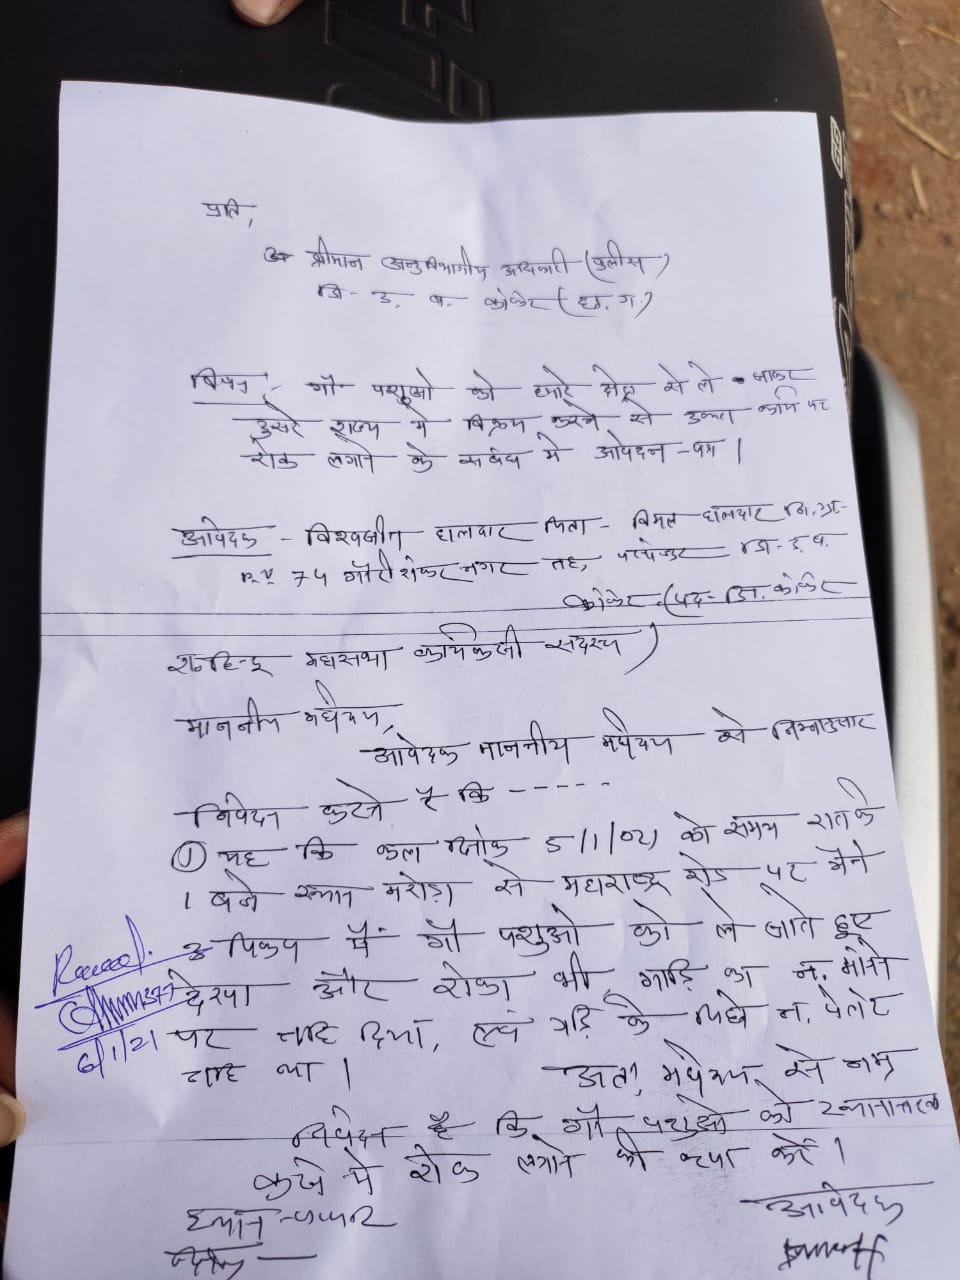 प्रति,
श्रीमान अनुविभागीय अधिकारी (पुलीस)
जि- उ. ब. कांकेर (छ. ग.)
विषय :- गौ पशुओ को हमारे क्षेत्र से ले जाकर
दुसरे राज्य मे विक्रय करने से उक्त कार्य पर
रोक लगाने के संबंध मे आवेदन -पत्र ।
आवेदक - विश्वजीत हालदार पिता - विमल हालदार नि. ग्रा-
74 गौरीशंकर नगर तह, जि- उ. ब.
कांकेर. (पद- जि. कांकेर
महासभा कार्यकारणी सदस्य)
माननीय महोदय,
आवेदक माननीय महोदय से निम्नानुसार
निवेदन करते है कि -----
① यह कि कल दिनांक 5/1/021 को समय रात के
1 बजे स्थान मरोड़ा से महाराष्ट्र रोड पर मैने
पिकप में गौ पशुओ को ले जाते हुए
देखा और रोका भी, गाड़ि का न. मांगने
पर नहि दिया, एवं गाड़ि के पिछे न. पलेट
नहि था । अतः महोदय से नम्र
निवेदन है कि गौ पशुओ को स्थानान्तरण
करने मे रोक लगाने की कृपा करें ।
आवेदक
दिनांक —
6/1/21